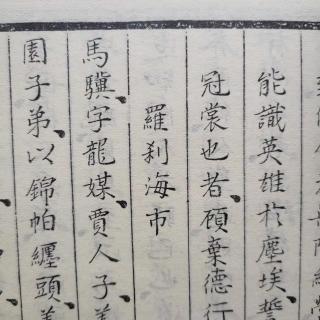 能識英雄於塵埃誓
冠裳也者顧棄德行
羅刹海市
馬驥字龍媒賈人子美
園子弟以錦帕纏頭美